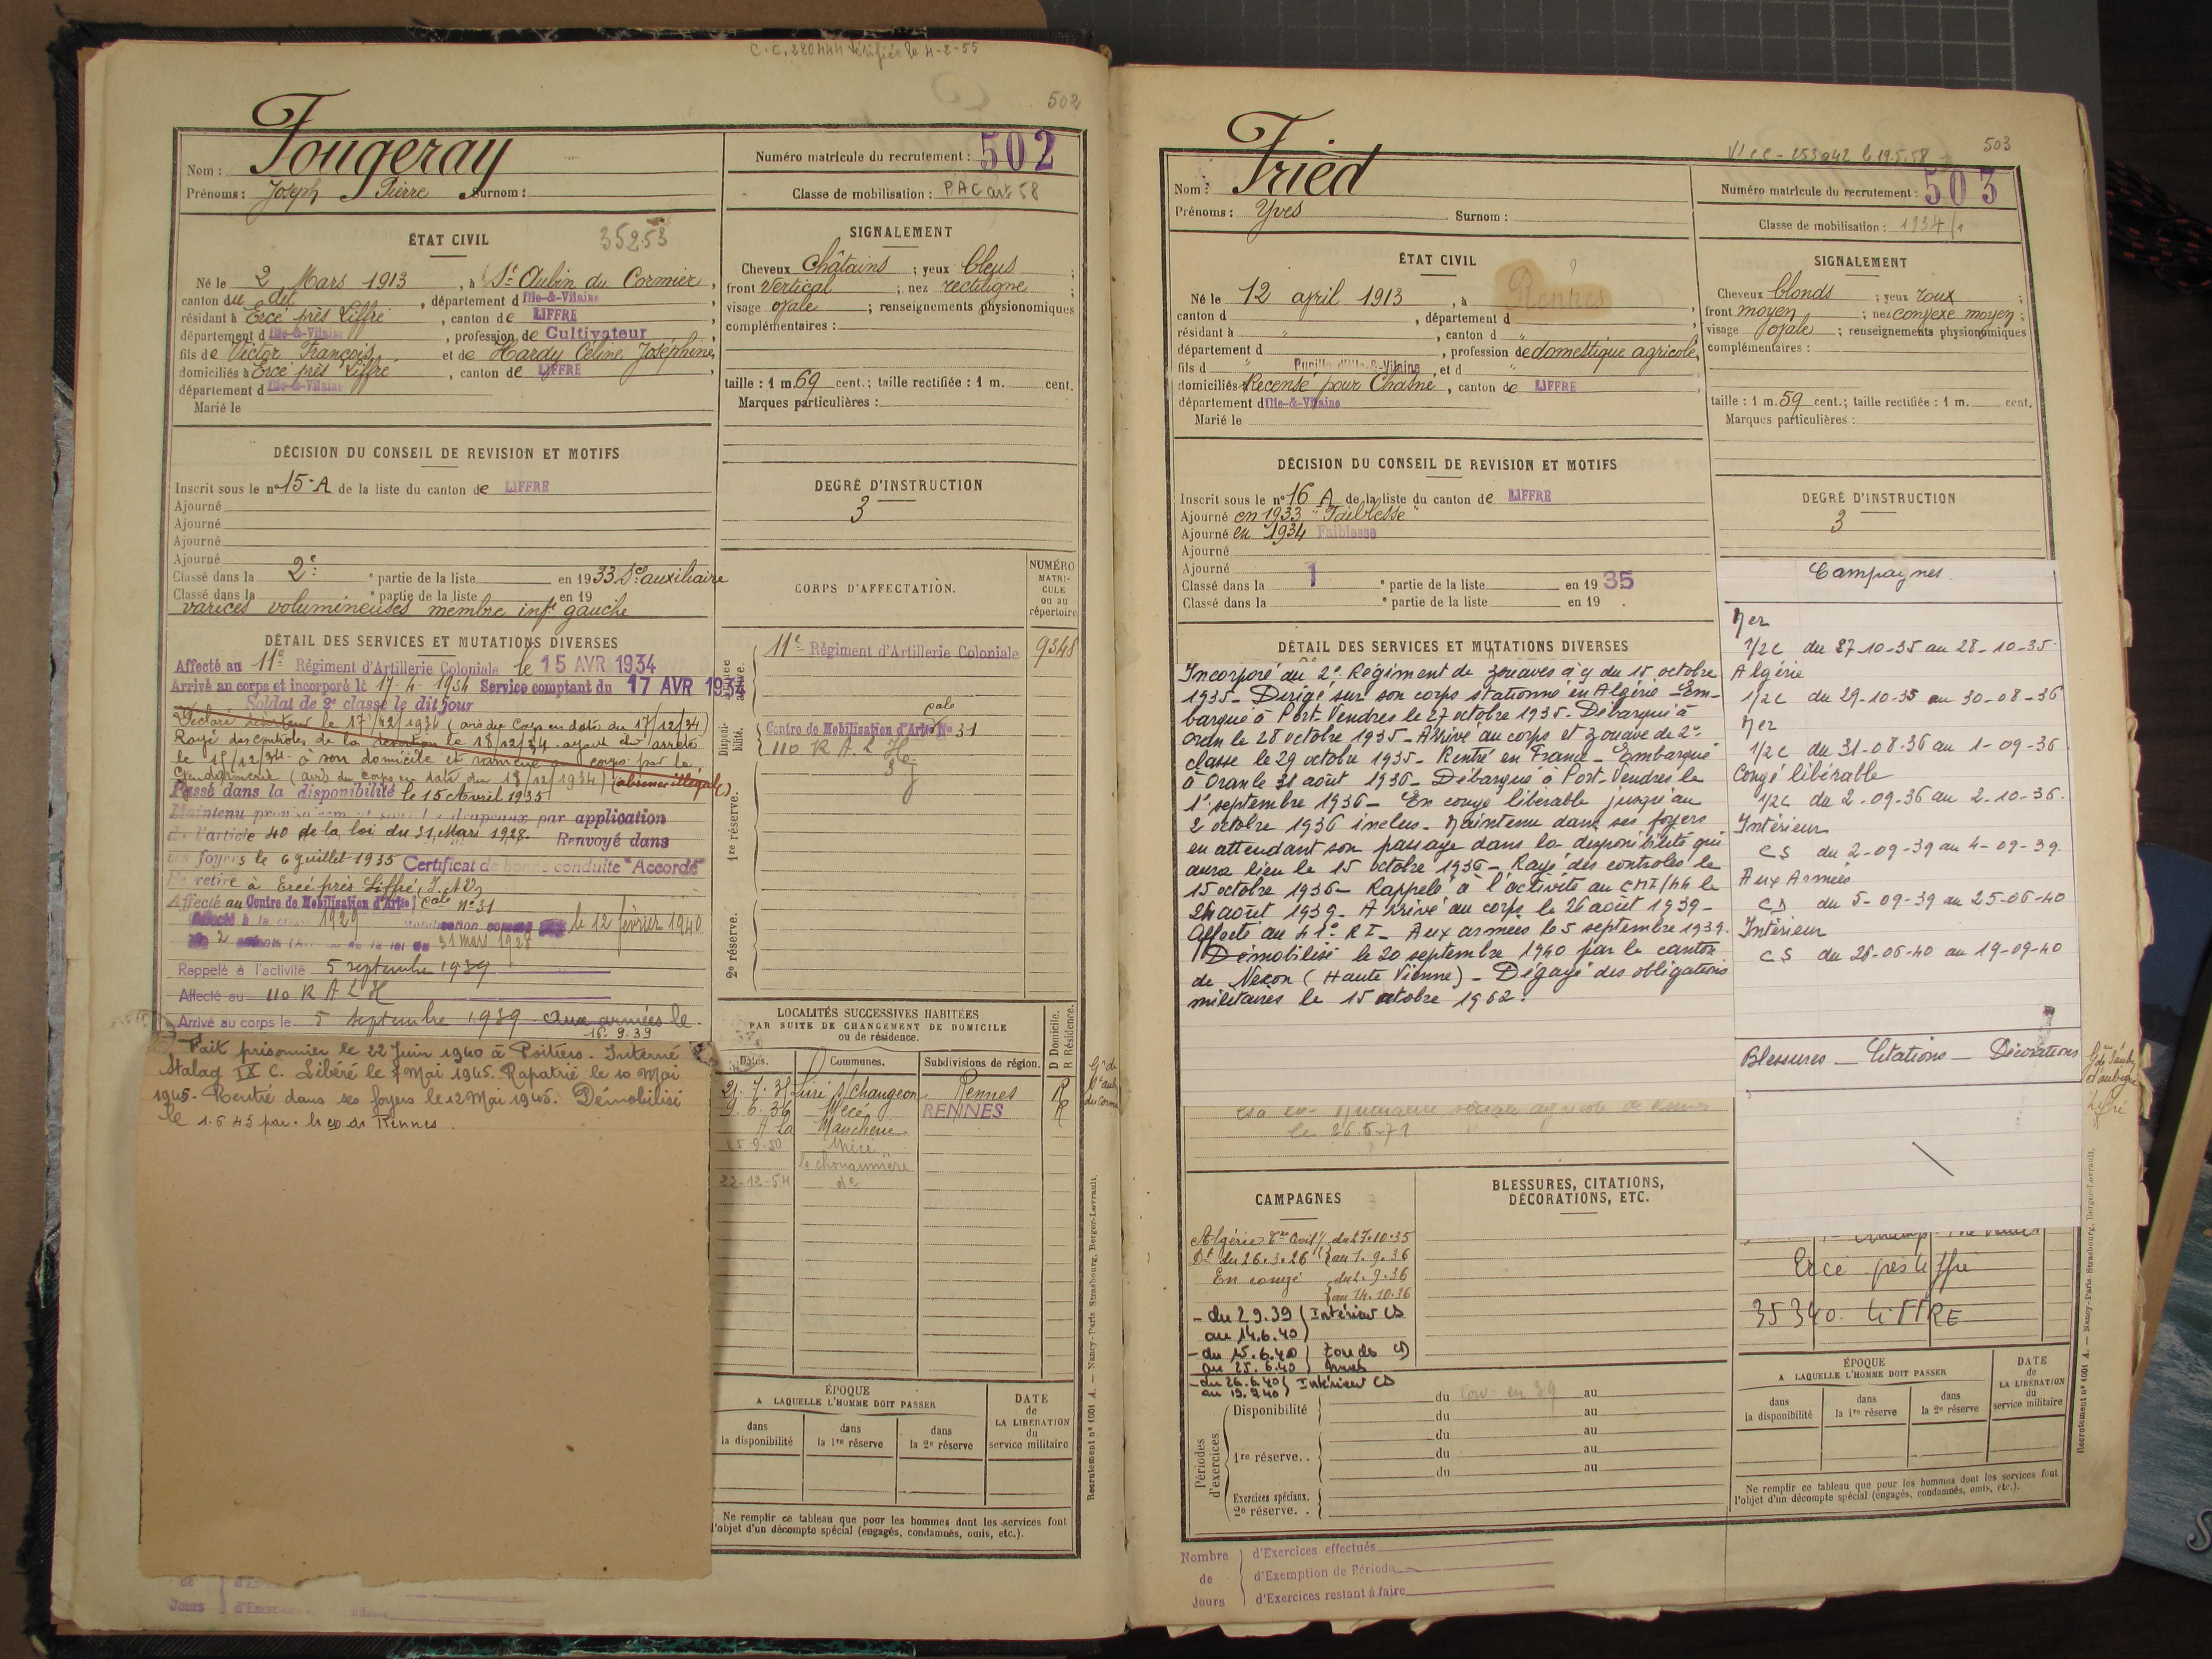 C.C. 280444 vérifiée le 4-2-55
502
Nom : Fougeray
Prénoms : Joseph Pierre Surnom :
Numéro matricule du recrutement : 502
Classe de mobilisation : PAC art 58
ÉTAT CIVIL
35253
Né le 2 Mars 1913, à St Aubin du Cormier,
canton du dit, département d Ille-&-Vilaine
résidant à Ercé près Liffré, canton de LIFFRE
département d Ille-&-Vilaine, profession de Cultivateur
fils de Victor François et de Hardy Céline Joséphine,
domiciliés à Ercé près Liffré, canton de LIFFRE
département d Ille-&-Vilaine
Marié le
SIGNALEMENT
Cheveux Châtains ; yeux bleus ;
front vertical ; nez rectiligne ;
visage ovale ; renseignements physionomiques
complémentaires :
taille : 1 m. 69 cent.; taille rectifiée : 1 m. cent.
Marques particulières :
DÉCISION DU CONSEIL DE REVISION ET MOTIFS
Inscrit sous le n° 15-A de la liste du canton de LIFFRE
Ajourné
Ajourné
Ajourné
Ajourné
Classé dans la 2e partie de la liste en 1933 Sce auxiliaire
Classé dans la partie de la liste en 19
varices volumineuses membre infr gauche
DEGRÉ D'INSTRUCTION
3
DÉTAIL DES SERVICES ET MUTATIONS DIVERSES
Affecté au 11e Régiment d'Artillerie Coloniale le 15 AVR 1934
Arrivé au corps et incorporé le 17-4-1934 Service comptant du 17 AVR 1934
Soldat de 2e classe le dit jour
Déclaré déserteur le 17/12/1934 (avis du Corps en date du 17/12/34)
Rayé des contrôles de la désertion le 18/12/34 ayant été arrêté
le 18/12/34 à son domicile et ramené au corps par la
Gendarmerie (avis du corps en date du 18/12/1934) (absence illégale)
Passé dans la disponibilité le 15 Avril 1935
Maintenu par application
de l'article 40 de la loi du 31 Mars 1928 Renvoyé dans
ses foyers le 6 juillet 1935 Certificat de bonne conduite "Accordé"
Se retire à Ercé près Liffré, I. et V.
Affecté au Centre de Mobilisation d'Artie cale N° 31
1929 le 12 février 1940
31 mars 1928
Rappelé à l'activité 5 septembre 1939
Affecté au 110 R A L H
Arrivé au corps le 5 septembre 1939 aux armées le
16.9.39
Fait prisonnier le 22 Juin 1940 à Poitiers. Interné
Stalag IX C. Libéré le 7 Mai 1945. Rapatrié le 10 Mai
1945. Rentré dans ses foyers le 12 Mai 1945. Démobilisé
le 1.6.45 par Rennes.
CORPS D'AFFECTATION.
NUMÉRO MATRI-CULE ou au répertoire
Disponi-bilité.
1re réserve.
2e réserve.
11e Régiment d'Artillerie Coloniale 9348
Centre de Mobilisation d'Artie cale No 31
110 R A L H
LOCALITÉS SUCCESSIVES HABITÉES
PAR SUITE DE CHANGEMENT DE DOMICILE
ou de résidence.
Dates. Communes. Subdivisions de région. D Domicile. R Résidence.
Livré s/ Changeon Rennes R
9.6.36 Mecé RENNES R
25-9-50 Mécé
22-12-54 do
ÉPOQUE
A LAQUELLE L'HOMME DOIT PASSER
dans la disponibilité
dans la 1re réserve
dans la 2e réserve
DATE de LA LIBÉRATION du service militaire
Ne remplir ce tableau que pour les hommes dont les services font
l'objet d'un décompte spécial (engagés, condamnés, omis, etc.).
Recrutement n° 1001 A. — Nancy-Paris-Strasbourg, Berger-Levrault.
de
Jours
503
Nom : Fried
Prénoms : Yves Surnom :
Numéro matricule du recrutement : 503
Classe de mobilisation : 1934/1
ÉTAT CIVIL
?
Né le 12 april 1913, à Rennes
canton d , département d
résidant à , canton d
département d , profession de domestique agricole,
fils d Pupille d'Ille-&-Vilaine et d
domiciliés Recensé pour Chasné, canton de LIFFRE
département d Ille-&-Vilaine
Marié le
SIGNALEMENT
Cheveux blonds ; yeux roux ;
front moyen ; nez convexe moyen ;
visage ovale ; renseignements physionomiques
complémentaires :
taille : 1 m. 59 cent.; taille rectifiée : 1 m. cent.
Marques particulières :
DÉCISION DU CONSEIL DE REVISION ET MOTIFS
Inscrit sous le n° 16 A de la liste du canton de LIFFRE
Ajourné en 1933 "Faiblesse"
Ajourné en 1934 Faiblesse
Ajourné
Ajourné
Classé dans la 1 e partie de la liste en 1935
Classé dans la e partie de la liste en 19 .
DEGRÉ D'INSTRUCTION
3
DÉTAIL DES SERVICES ET MUTATIONS DIVERSES
Incorporé au 2e Régiment de zouaves à/c du 15 octobre
1935 - Dirigé sur son corps stationné en Algérie - Em-
barqué à Port-Vendres le 27 octobre 1935 - Débarqué à
Oran le 28 octobre 1935 - Arrivé au corps et zouave de 2e
classe le 29 octobre 1935 - Rentré en France - Embarqué
à Oran le 31 août 1936 - Débarqué à Port-Vendres le
1er septembre 1936 - En congé libérable jusqu'au
2 octobre 1936 inclus - Maintenu dans ses foyers
en attendant son passage dans la disponibilité qui
aura lieu le 15 octobre 1936 - Rayé des contrôles le
15 octobre 1936 - Rappelé à l'activité au CMI/44 le
24 août 1939 - Arrivé au corps le 26 août 1939 -
Affecté au 41e RI - Aux armées le 5 septembre 1939.
Démobilisé le 20 septembre 1940 par le canton
de Nexon (Haute Vienne) - Dégagé des obligations
militaires le 15 octobre 1962.
Campagnes
Mer
1/2C du 27-10-35 au 28-10-35
Algérie
1/2C du 29-10-35 au 30-08-36
Mer
1/2C du 31-08-36 au 1-09-36
Congé libérable
1/2C du 2-09-36 au 2-10-36
Intérieur
CS du 2-09-39 au 4-09-39
Aux Armées
CD du 5-09-39 au 25-06-40
Intérieur
CS du 26-06-40 au 19-09-40
Blessures - Citations - Décorations
mutualité sociale agricole de Rennes
le 26.5.71
CAMPAGNES
Algérie du 27.10.35
au 1.9.36
En congé du 2.9.36
au 14.10.36
- du 2 9.39 ( Intérieur CS
au 14.6.40 )
- du 15.6.40 ) Zone des CD
au 25.6.40 ) Armées
- du 26.6.40 ( Intérieur CS
au 19.9.40 )
BLESSURES, CITATIONS,
DÉCORATIONS, ETC.
Ercé près Liffré
35340 LIFFRE
Périodes d'exercices
Disponibilité du Conv. en 39 au
du au
1re réserve. . du au
du au
du au
Exercices spéciaux.
2e réserve. .
ÉPOQUE
A LAQUELLE L'HOMME DOIT PASSER
dans la disponibilité
dans la 1re réserve
dans la 2e réserve
DATE de LA LIBÉRATION du service militaire
Ne remplir ce tableau que pour les hommes dont les services font
l'objet d'un décompte spécial (engagés, condamnés, omis, etc.).
Recrutement n° 1001 A. — Nancy-Paris-Strasbourg, Berger-Levrault.
Nombre de Jours
d'Exercices effectués
d'Exemption de Période
d'Exercices restant à faire